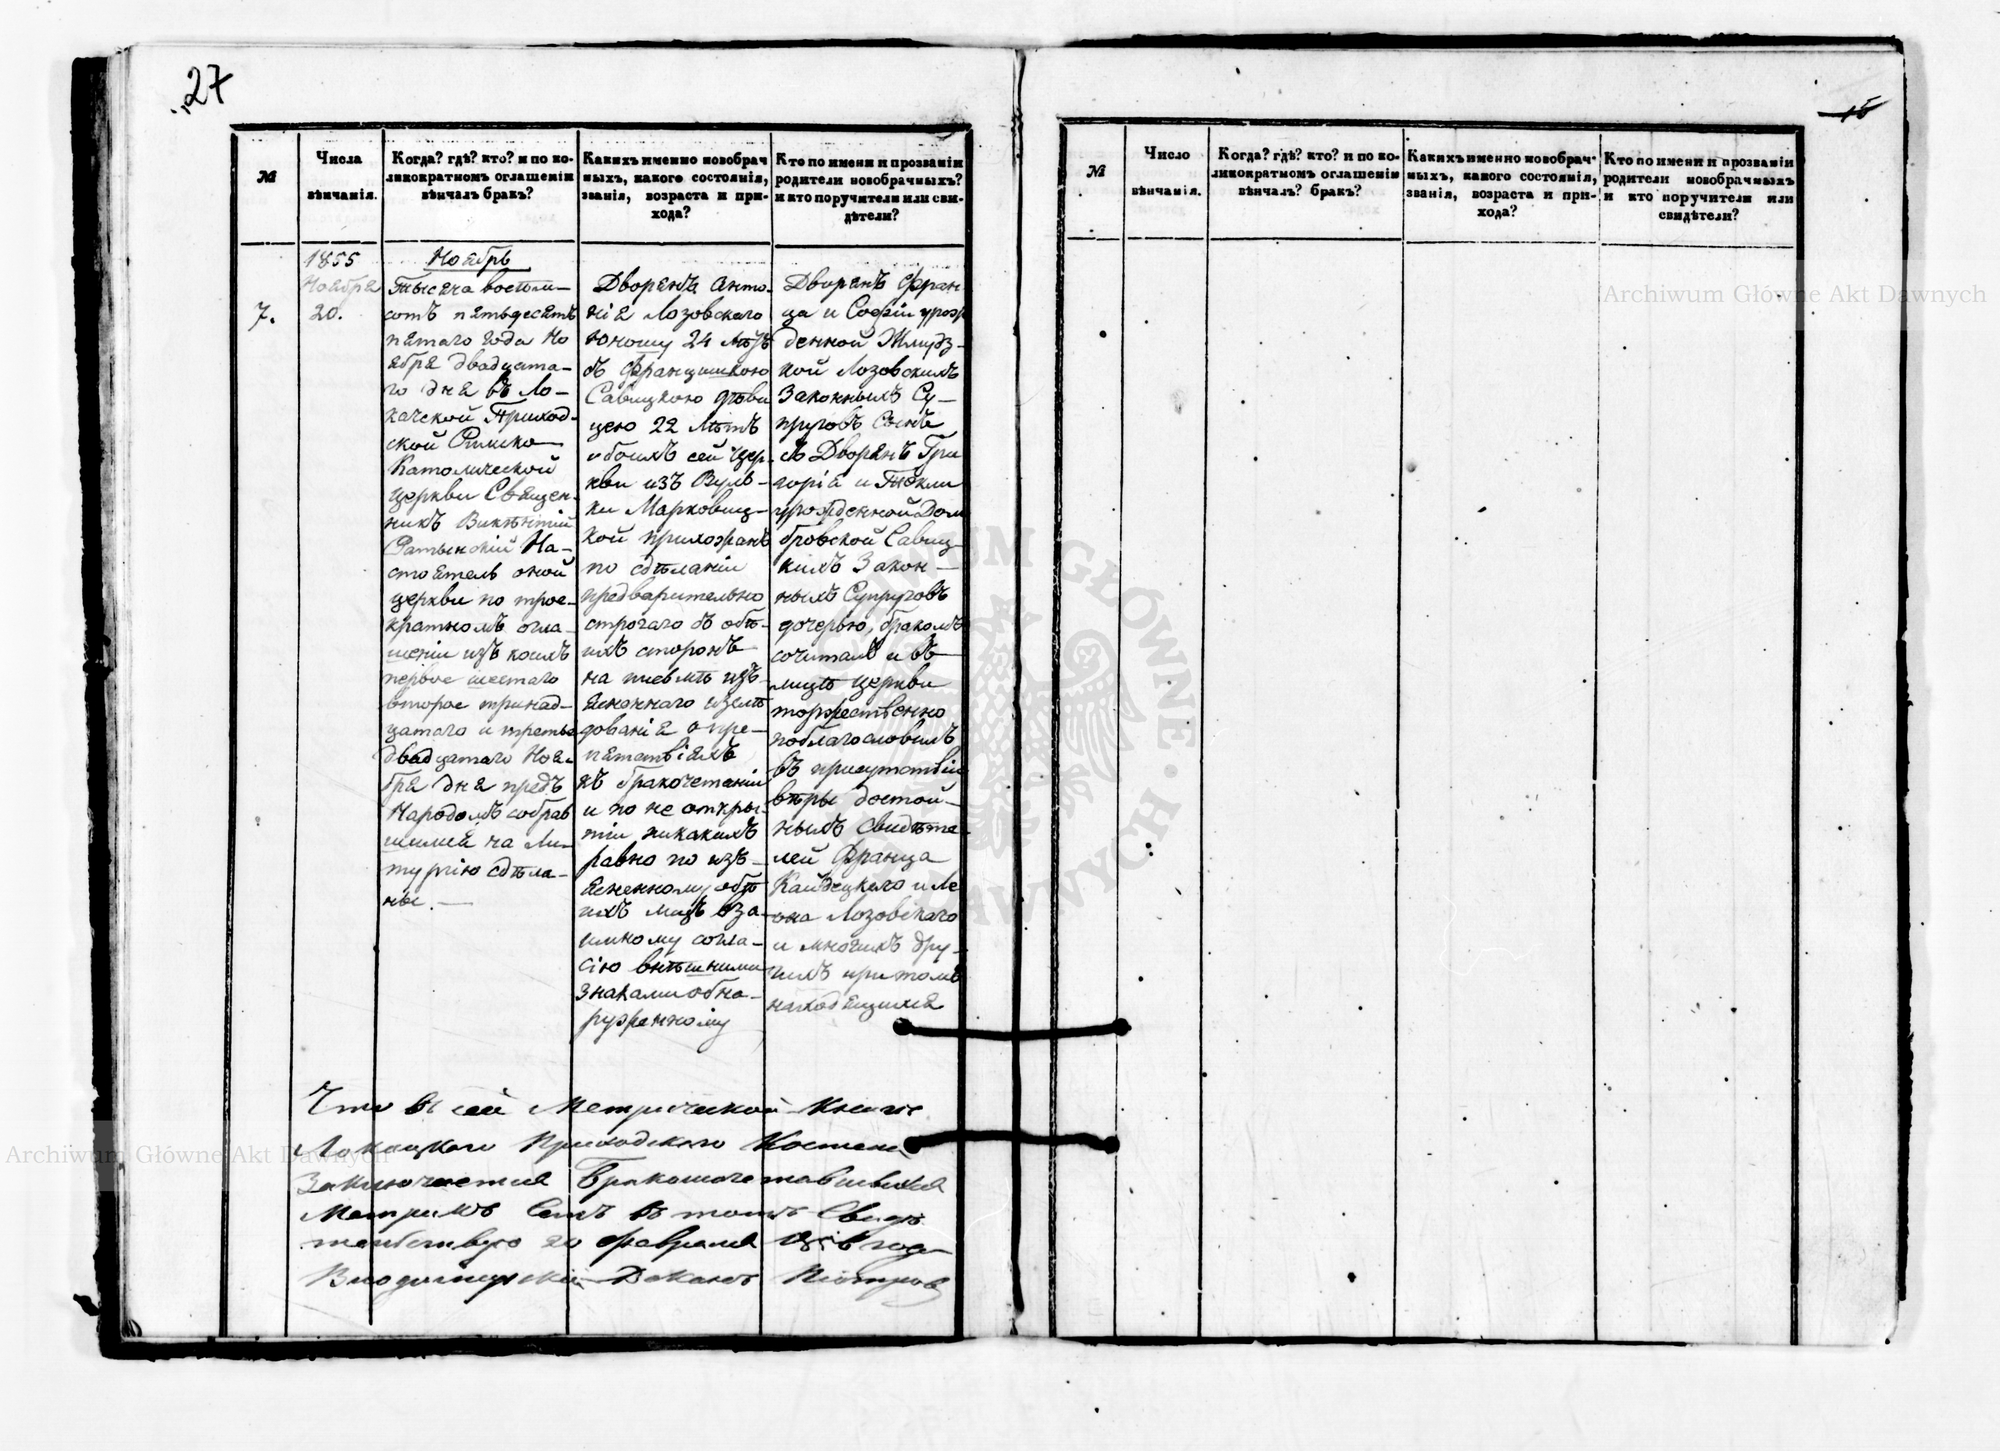 27
№
Числа
вѣнчанія.
Когда? гдѣ? кто? и по ко-
ликократномъ оглашеніи
вѣнчалъ бракъ?
Какихъ именно новобрач
ныхъ, какого состоянія,
званія, возраста и при-
хода?
Кто по имени и прозванію
родители новобрачныхъ?
и кто поручители или сви-
дѣтели?
7.
1855
Ноября
20.
Ноябрь
Тысяча восем-
сотъ пятьдесятъ
пятаго года Но
ября двадцата-
го дня въ Ло-
качской Приход-
ской Римско
Католической
церкви Священ-
никъ Викентій
На-
стоятель оной
церкви по трое-
кратномъ огла-
шеніи изъ коихъ
первое шестаго
второе тринад-
цатаго и третье
двадцатаго Ноя-
бря дня предъ
Народомъ собрав
шимся на Ли-
тургію сдѣла-
ны.
Дворянъ Анто-
нія Лозовскаго
юношу 24 лѣтъ
съ Францишкою
Савицкою дѣви
цею 22 лѣтъ
обоихъ сей цер-
кви изъ Вуль-
ки Марковиц-
кой прихожанъ
по сдѣланіи
предварительно
строгаго съ обѣ-
ихъ сторонъ
на письмѣ изъ-
ясненнаго изслѣ
дованія о пре-
пятствіяхъ
къ бракочетанію
и по не откры-
тіи никакихъ
равно по изъ-
ясненному обѣ
ихъ лицъ вза-
имному согла-
сію внѣшними
знаками обна-
руженному
Дворянъ Фран
ца и Софіи урож
денной Жмудз-
кой Лозовскихъ
Законныхъ Су-
пруговъ Сына
съ Дворянъ Гри
горія и Теклі
урожденной Дом
бровской Савиц-
кихъ Закон-
ныхъ Супруговъ
дочерью, бракомъ
сочиталъ и въ
лицѣ церкви
торжественно
поблагословилъ
въ присутствіи
вѣры достой-
ныхъ Свидѣте-
лей Франца
и Ле
она Лозовскаго
и многихъ дру-
гихъ при томъ
находящихся
Что въ сей Метрической Книге
Локацкаго Приходскаго Костела
Заключается Бракосочетавшихся
Метрикъ Семъ въ томъ Свидѣ
тельствую 20 февраля 1856 года
Владимирскій Деканъ
15
№
Число
вѣнчанія.
Когда? гдѣ? кто? и по ко-
ликократномъ оглашеніи
вѣнчалъ? бракъ?
Какихъ именно новобрач-
ныхъ, какого состоянія,
званія, возраста и при-
хода?
Кто по имени и прозванію
родители новобрачныхъ
и кто поручители или
свидѣтели?
Archiwum Główne Akt Dawnych
Archiwum Główne Akt Dawnych
ARCHIWUM GŁÓWNE AKT DAWNYCH